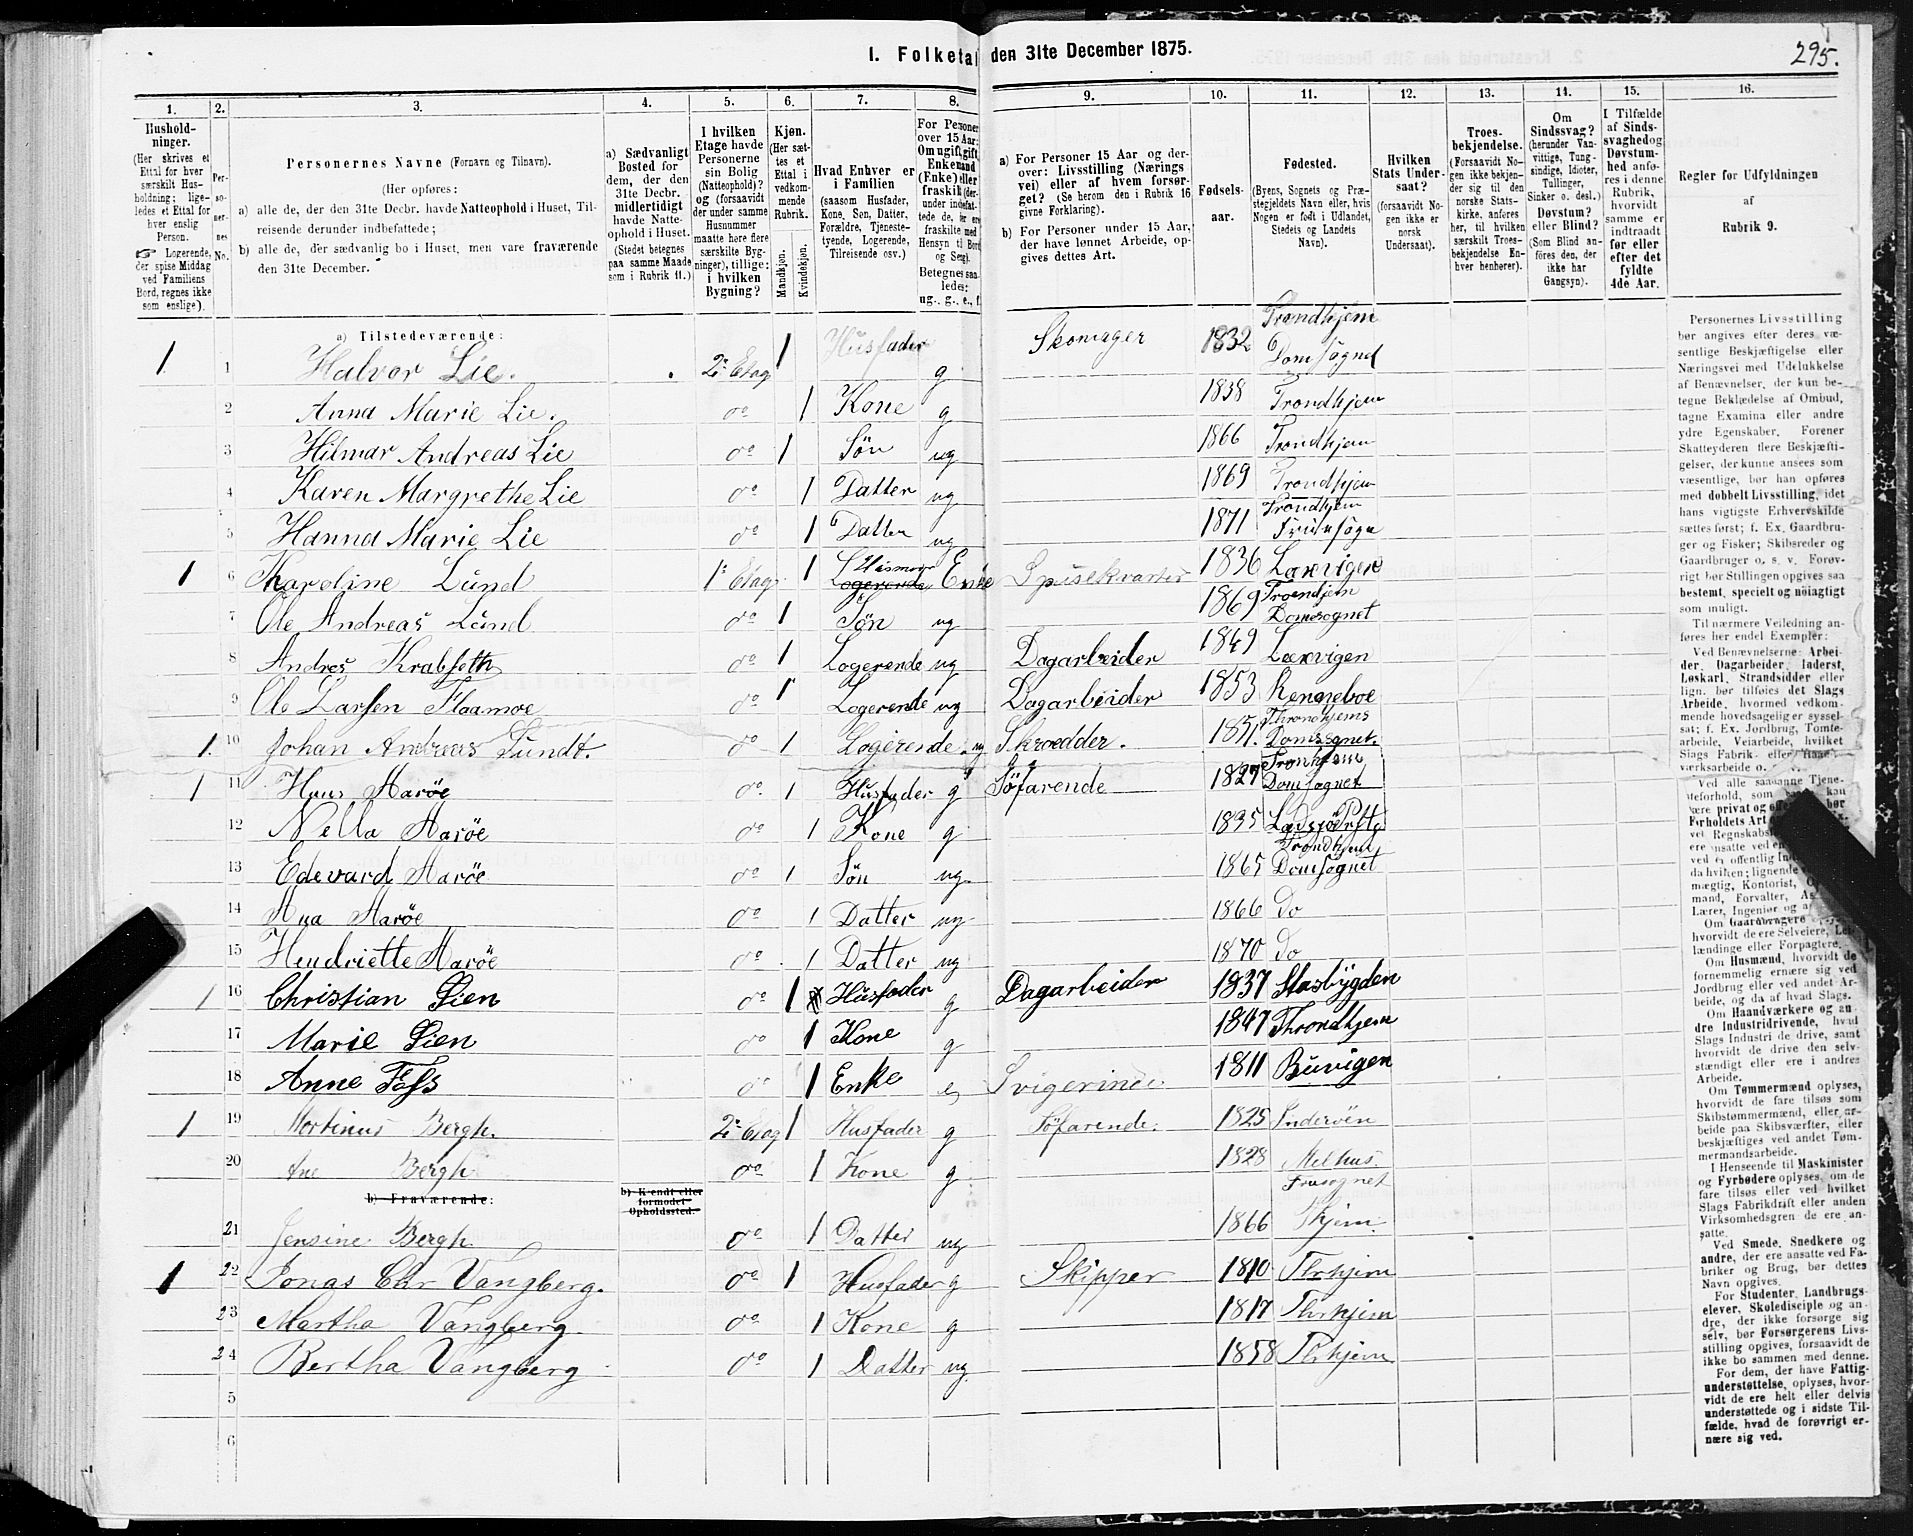 I. Folketal den 31te December 1875.
295.
1. 2. 3. 4. 5. 6. 7. 8. 9. 10. 11. 12. 13. 14. 15. 16.
Hushold-
ninger.
(Her skrives et
Ettal for hver
særskilt Hus-
holdning; lige-
ledes et Ettal for
hver enslig
Person.
Logerende,
der spise Middag
ved Familiens
Bord, regnes ikke
som enslige).
Per-
so-
ner-
nes
No.
Personernes Navne (Fornavn og Tilnavn).
(Her opføres:
a) alle de, der den 31te Decbr. havde Natteophold i Huset, Til-
reisende derunder indbefattede;
b) alle de, der sædvanlig bo i Huset, men vare fraværende
den 31te December.
a) Sædvanligt
Bosted for
dem, der den
31te Decbr.
midlertidigt
havde Natte-
ophold i Huset.
(Stedet betegnes
paa samme Maade
som i Rubrik 11.)
I hvilken
Etage havde
Personerne
sin Bolig
(Natteophold)?
og (forsaavidt
der under samme
Husnummer
maatte høre flere
særskilte Byg-
ninger), tillige:
i hvilken
Bygning?
Kjøn.
(Her sæt-
tes et
Ettal i
vedkom-
mende
Rubrik.
Mandkjøn.
Kvindekjøn.
Hvad Enhver er
i Familien
(saasom Husfader,
Kone, Søn, Datter,
Forældre, Tjeneste-
tyende, Logerende,
Tilreisende osv.)
For Personer
over 15 Aar:
Om ugift, gift,
Enkemand
(Enke) eller
fraskilt
Betegnes saa-
ledes:
ug., g., e., f.
a) For Personer 15 Aar og der-
over: Livsstilling (Nærings
vei) eller af hvem forsør-
get? (Se herom den i Rubrik 16
givne Forklaring).
b) For Personer under 15 Aar,
der have lønnet Arbeide, op-
gives dettes Art.
Fødsels-
aar.
Fødested.
(Byens, Sognets og Præ-
stegjeldets Navn eller, hvis
Nogen er født i Udlandet,
Stedets og Landets
Navn).
Hvilken
Stats Under-
saat?
(forsaavidt No-
gen ikke er
norsk
Undersaat).
Troes-
bekjendelse.
(Forsaavidt No-
gen ikke bekjen-
der sig til den
norske Stats-
kirke, anføres
her, til hvilken
særskilt Troes-
bekjendelse En-
hver henhører).
Om
Sindssvag?
(herunder Van-
vittige, Tung-
sindige, Idioter,
Tullinger,
Sinker o. desl.)
Døvstum?
eller Blind?
(Som Blind an-
føres den, der
ikke har
Gangsyn).
I Tilfælde
af Sinds-
svaghed og
Døvstum-
hed anfø-
res i denne
Rubrik,
hvorvidt
samme er
indtraadt
før eller
efter det
fyldte
4de Aar.
Regler for Udfyldningen
af
Rubrik 9.
a) Tilstedeværende:
1 1 Halvor Lie. 2: Etag 1 Husfader g Skomager 1832 Trondhjem Domsognet
2 Anna Marie Lie. do 1 Kone g 1838 Trondhjem
3 Hilmar Andreas Lie do 1 Søn ug 1866 Trondhjem
4 Karen Margrethe Lie do 1 Datter ug 1869 Trondhjem
5 Hanna Marie Lie do 1 Datter ug 1871 Trondhjem
1 6 Karoline Lund 1: Etag 1 Husmoer Logerende Enke Spisekvarter 1836 Laxvigen
7 Ole Andreas Lund do 1 Søn ug 1869 Trondhjem Domsognet
8 Andres Krabseth do 1 Logerende ug Dagarbeider 1849 Laxvigen
9 Ole Larsen Flaamoe do 1 Logerende ug Dagarbeider 1853 Renneboe
1. 10 Johan Andreas Lundt. do 1 Logerende ug Skrædder. 1851. Throndhjems Domsognet.
1 11 Hans Aarøe do 1 Husfader g Søfarende 1827 Tronhjem Domsognet
12 Nella Aarøe do 1 Kone g 1835
13 Edevard Aarøe do 1 Søn ug. 1865 Trondhjem Domsognet
14 Ana Aarøe do 1 Datter ug 1866 do
15 Hendriette Aarøe do 1 Datter ug 1870 do
1 16 Christian Lien do 1 Husfader g Dagarbeider 1837 Stasbygden
17 Marie Lien do 1 Kone g 1847 Throndhjem
18 Anne Foss do 1 Enke e Svigerinde 1811 Buvigen
1 19 Mortinus Bergh. 2: Etag 1 Husfader g Søfarende. 1825 Inderøen
20 Ane Bergh do 1 Kone g 1828 Melhus.
b) Fraværende:
b) Kjendt eller
formodet
Opholdssted.
21 Jensine Bergh do 1 Datter ug 1866 Fruesognet Thjem
1 22 Jonas Chr Vangberg. do 1 Husfader g Skipper 1810 Thrhjem
23 Martha Vangberg. do 1 Kone g 1817 Thrhjem
24 Bertha Vangberg do 1 Datter ug 1858 Thrhjem
5
6
Personernes Livsstilling
bør angives efter deres væ-
sentlige Beskjæftigelse eller
Næringsvei med Udelukkelse
af Benævnelser, der kun be-
tegne Beklædelse af Ombud,
tagne Examina eller andre
ydre Egenskaber. Forener
Skatteyderen flere Beskjæfti-
gelser, der kunne ansees som
væsentlige, bør han opføres
med dobbelt Livsstilling, idet
hans vigtigste Erhvervskilde
sættes først; f. Ex. Gaardbru-
ger og Fisker; Skibsreder og
Gaardbruger o. s. v. Forøv-
rigt bør Stillingen opgives saa
bestemt, specielt og nøiagtigt
som muligt.
Til nærmere Veiledning an-
føres her endel Exempler:
Ved Benævnelserne: Arbei-
der, Dagarbeider, Inderst,
Løskarl, Strandsidder eller
lign. bør tilføies det Slags
Arbeide, hvormed vedkom-
mende hovedsagelig er syssel-
sat; f. Ex. Jordbrug, Tomte-
arbeide, Veiarbeide, hvilket
Slags Fabrik- eller Haand-
værksarbeide o.
Ved alle saadanne Tjene-
steforhold, som
være privat og
Forholdets Art
Om Gaardbrugere
hvorvidt de ere Selveiere, Lei-
lændinge eller Forpagtere.
Om Husmænd, hvorvidt de
fornemmelig ernære sig ved
Jordbrug eller ved andet Ar-
beide, og da af hvad Slags.
Om Haandværkere og an-
dre Industridrivende, hvad
Slags Industri de drive, samt
hvorvidt de drive den selv-
stændigt eller ere i andres
Arbeide.
Om Tømmermænd oplyses,
hvorvidt de fare tilsøs som
Skibstømmermænd, eller ar-
beide paa Skibsværfter, eller
beskjæftiges ved andet Tøm-
mermandsarbeide.
I Henseende til Maskinister
og Fyrbødere oplyses, om de
fare tilsøs eller ved hvilket
Slags Fabrikdrift eller anden
Virksomhedsgren de ere an-
satte.
Ved Smede, Snedkere og
andre, der ere ansatte ved Fa-
briker og Brug, bør dettes
Navn opgives.
For Studenter, Landbrugs-
elever, Skoledisciple og an-
dre, der ikke forsørge sig
selv, bør Forsørgerens Livs-
stilling opgives, forsaavidt de
ikke bo sammen med denne.
For dem, der have Fattig-
understøttelse, oplyses, hvor-
vidt de ere helt eller delvis
understøttede og i sidste Til-
fælde, hvad de forøvrigt er-
nære sig ved.